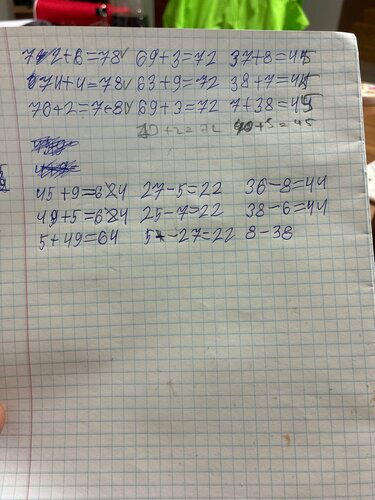 72+6=78 69+3=72 37+8=45
74+4=78 63+9=72 38+7=45
70+2=7 8 69+3=72 7+38=45
70+2=72 40+5=45
45+9=624 27-5=22 36-8=44
49+5=624 25-7=22 38-6=44
5+49=64 5-27=22 8-38